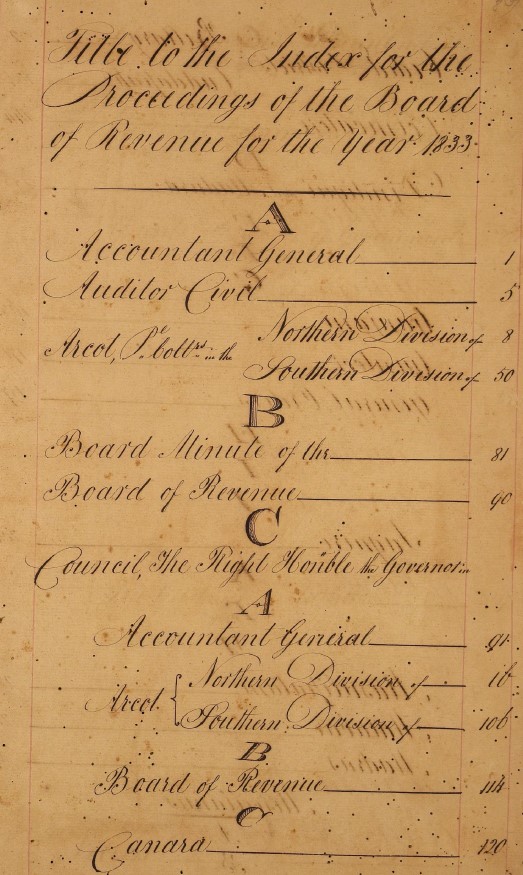 Title to the Index for the
Proceedings of the Board
of Revenue for the Year 1833
A
Accountant General 1
Auditor Civil 5
Arcot, Pl. Collrs. in the Northern Division of 8
Southern Division of 50
B
Board Minute of the 81
Board of Revenue 90
C
Council, The Right Honble the Governor in
A
Accountant General 91
Arcot Northern Division of
Southern Division of 106
B
Board of Revenue 114
C
Canara 120